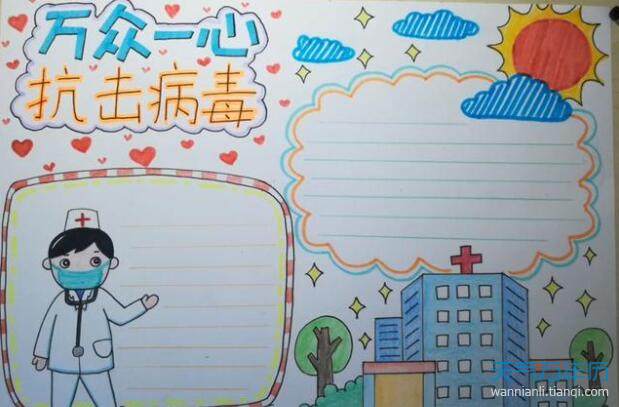 万众一心
抗击病毒
wannianli.tianqi.com